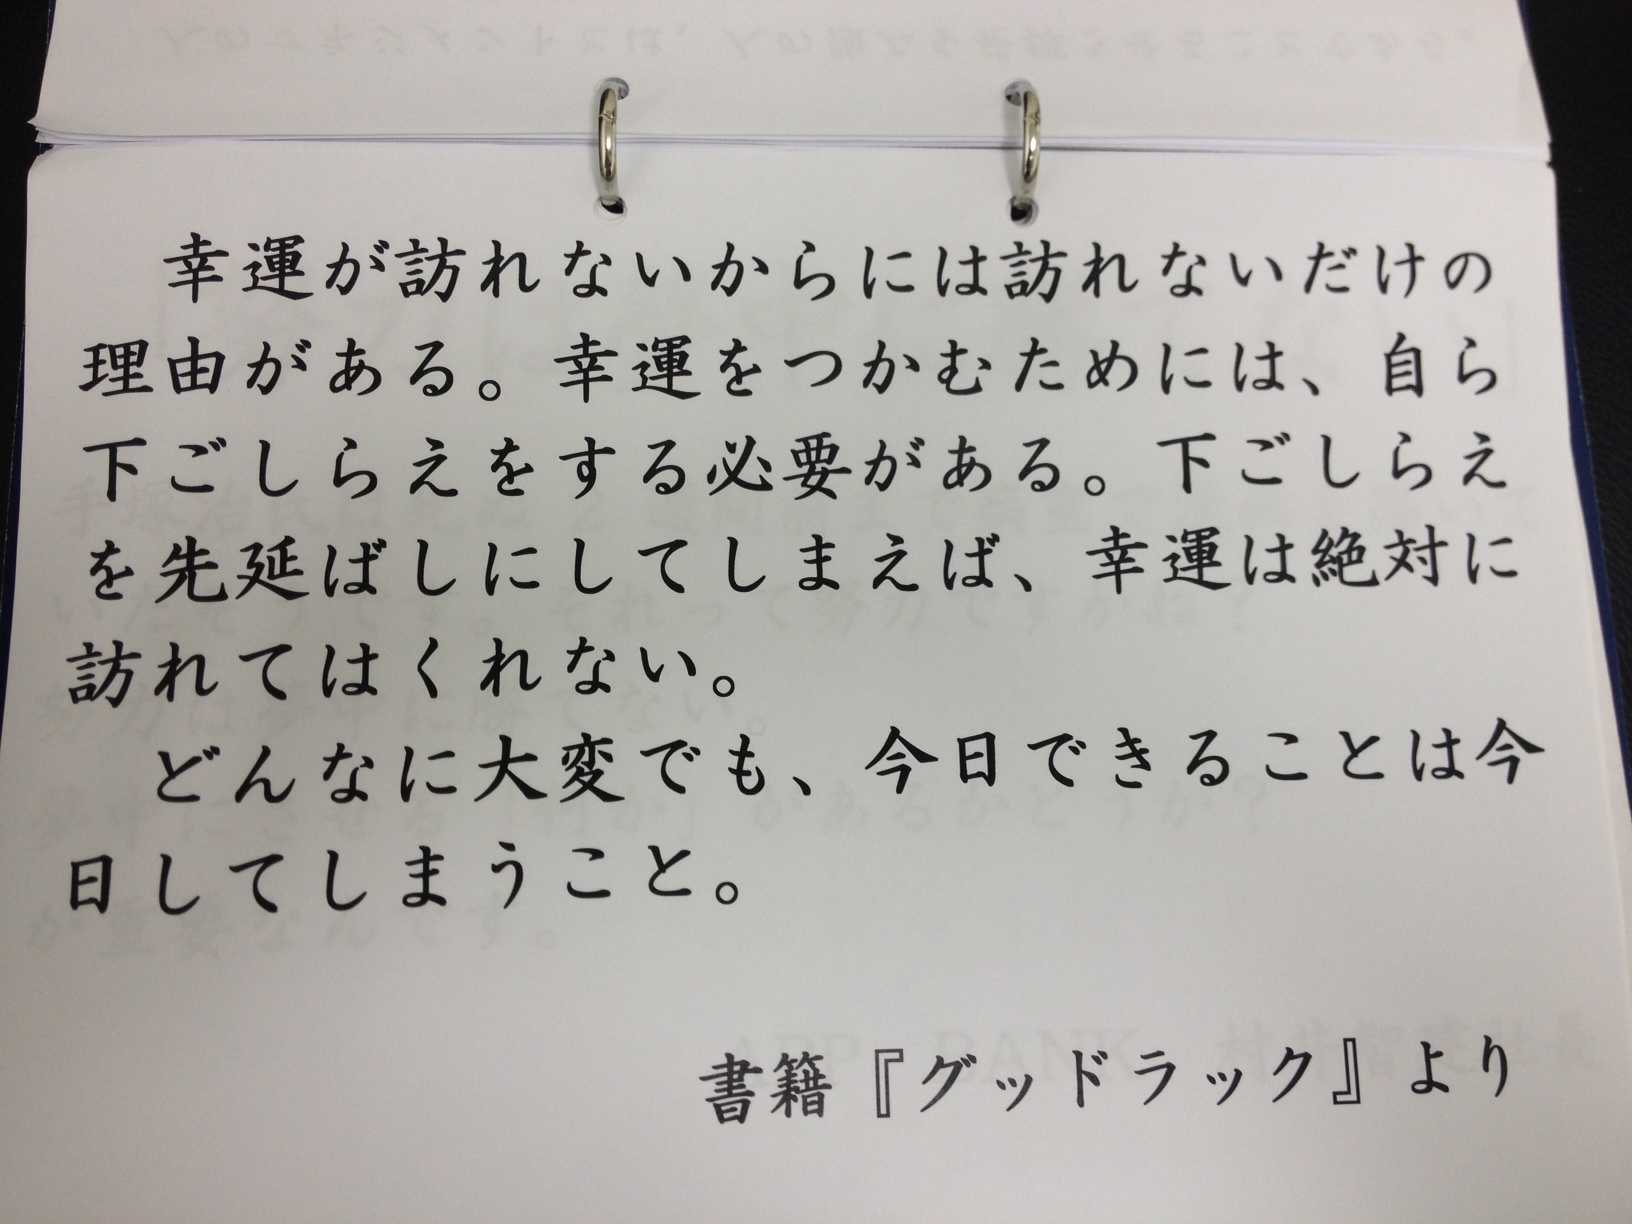 幸運が訪れないからには訪れないだけの
理由がある。幸運をつかむためには、自ら
下ごしらえをする必要がある。下ごしらえ
を先延ばしにしてしまえば、幸運は絶対に
訪れてはくれない。
どんなに大変でも、今日できることは今
日してしまうこと。
書籍『グッドラック』より